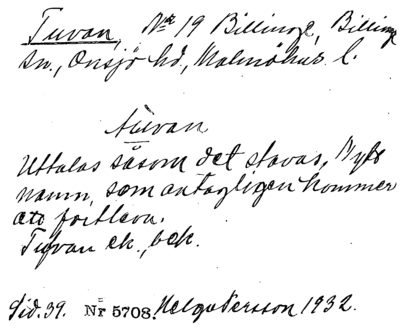 Tuvan, Nr 19 Billinge, Billinge
sn., Onsjö hd, Malmöhus l.
tuvan
Uttalas såsom det stavas, Nytt
namn, som antagligen kommer
att fortleva.
Tuvan ek., bok.
Sid. 39. Nr 5708. Helge Persson 1932.